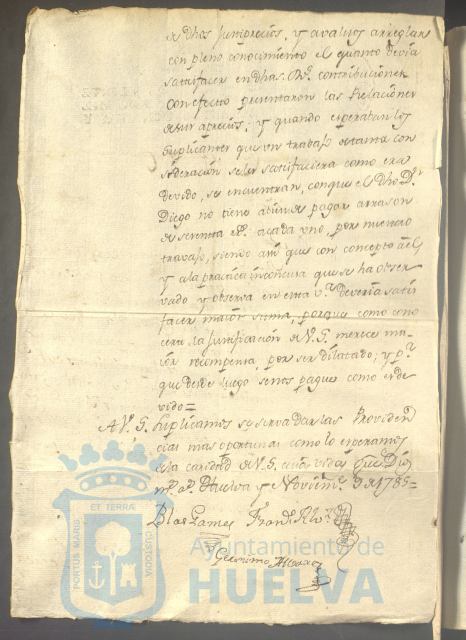 de dhos Jumprecios, y avaluos arreglar
con pleno conocimiento el quanto devia
satisfacer en dhas. Rs. contribuciones
Con efecto presentaron las Relaciones
de sus aprecios; y quando esperaban los
Suplicantes que un trabajo de tanta con
sideracion se les satisfaciera como era
devido, se encuentran, con que el dho Dn
Diego no tiene a bien de pagar a rrason
de sesenta Rs. a cada uno, por nuestro
travajo, siendo asi que con concepto a el,
y a la practica inconcusa que se ha obser
vado y observa en esta va. deveria satis
facer maior suma, porque como cono
cera la Justificacion de V.S. merece ma
ior recompensa, por ser dilatado; y pa.
que desde luego se nos pague como es de
vido=
A V. S. Suplicamos se sirva dar las Providen
cias mas oportunas como lo esperamos
de la caridad de V.S. cuia vida gue. Dios
ms. as. Huelva y Noviembre 9 de 1785=
Blas Gamez
Geronimo
ET TERRÆ
PORTUS MARIS
CUSTODIA
Ayuntamiento de
HUELVA